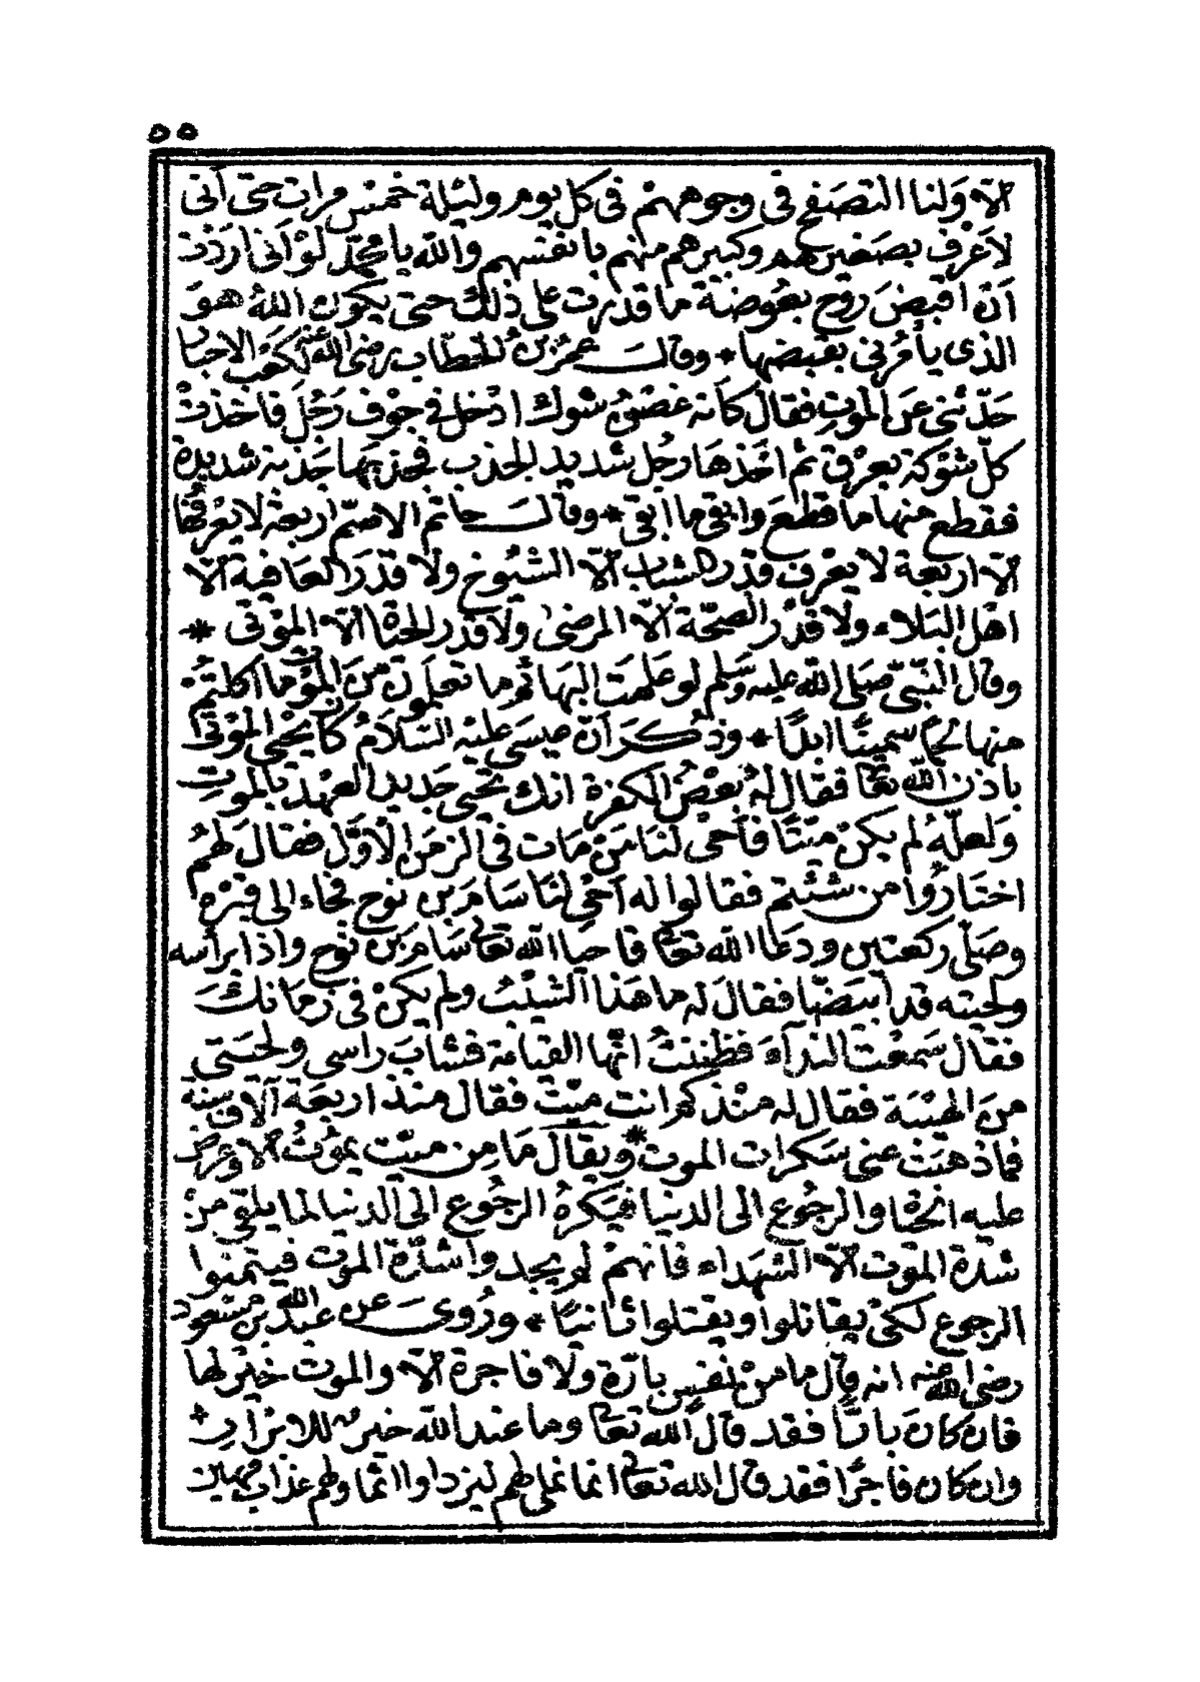 ٥٥
الّا وَلنا التصَفح فى وجوههمْ فى كل يوم وليْلة خمْس مرات حتى أنى
لاَعْرف بصَغيرهم وكبيرهم منهم بانفسهم والله يا محمّد لوْ اَنى اردْت
اَنْ اقبضَ روْح بعُوضة ما قدرت على ذلك حتى يكون اللهُ هوَ
الذى يأمُرنى بقبضها * وقالَ عمرُ بنُ الخطّاب رضى الله عنه لكعْب الاحبار
حَدّثنى عَن الموْتِ فقال كأنه غصْنُ شوك ادْخل فى جوْف رَجُلٍ فاخذتْ
كلّ شوْكة بعرْق ثم اخَذهَا رجُل شديد الجذب فجذبهَا جَذبة شديدة
فقطع منها ما قطعَ وابقى ما ابقى * وقالَ حاتم الاصمّ اربعة لا يعْرفها
الّا اربَعة لا يعْرف قدْر الشباب الّا الشيُوخ ولا قدْرَ العَافية الّا
اهْل البَلاء ولا قدْر الصحّة الّا المرضىٰ ولا قدْر الحيَاة الّا الموْتى *
وقال النّبىّ صَلى الله عليه وسَلم لو عَلمَت البهَائم ما تعلمُون منَ الموْت ما اكلتمْ
منها لحمًا سمينًا ابدًا * وذُكرَ اَنّ عيسَى عليْه السّلامُ كانَ يحْيى الموْتى
باذن الله تعالى فقال لهُ بعْضُ الكفرة انك تحْيى جَديد العهْد بالموتِ
وَلعلّهُ لم يكنْ ميّتًا فاَحْى لنَا مَنْ مَات فى الزمَن الْاَوّل فقالَ لهُمُ
اختَارُوا من شئتم فقالوا له اَحْى لنَا سَامَ بن نوح فجاء الى قبْره
وصَلّى ركعتين ودعَا الله تعالى فاحيَا الله تعَالى سَامَ بن نوح واذا برأسه
ولحيته قد ابيَضّا فقالَ له ما هَذا الشيْبُ ولم يكنْ فى زمَانكَ
فقال سَمعْت الندآءَ فظننتُ انّها القيَامة فشابَ راسى ولحيَتى
منَ الهَيْبَة فقال له منْذ كم انت ميّت فقال منذ اربعَة آلاف سنة
فما ذهبَتْ عنى سَكرات الموت * ويقالَ مَا مِن ميّت يموُتُ الّا وعُرضَ
عليه الحيَاة والرجُوع الى الدنيا فيَكرهُ الرجُوع الى الدنيا لما يلقى منْ
شدة الموْت الّا الشهَداء فانهمْ لم يجد واشدّة الموْت فيتمنوا
الرجوع لكىْ يقاتلوا ويقتلوا ثانيًا * ورُوىَ عن عبْد الله بن مسْعود
رضى الله عنه انه قال ما منْ نفس بارّة ولا فاجرة الّا والموت خيْر لها
فان كانَ بارّا فقد قال الله تعالى وما عند الله خيرٌ للابْرار *
وان كان فاجرًا فقد قال الله تعالى انما نملى لهم ليزدادوا اثمًا ولهم عذاب مهين